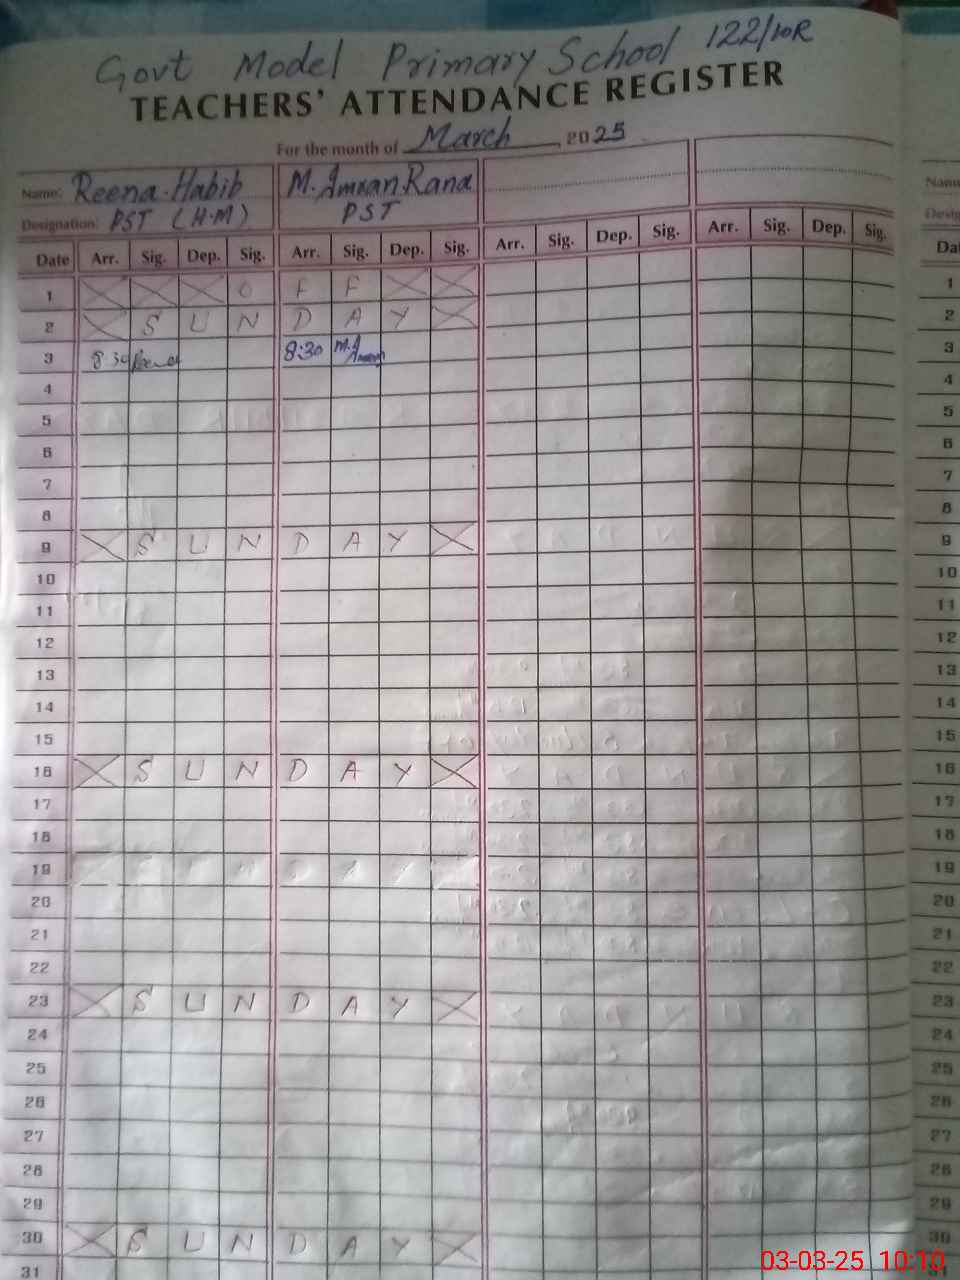 Govt Model Primary School 122/10R
TEACHERS' ATTENDANCE REGISTER
For the month of March 2025
Name: Reena Habib M. Amran Rana
Designation: PST (H.M) PST
Date Arr. Sig. Dep. Sig. Arr. Sig. Dep. Sig. Arr. Sig. Dep. Sig. Arr. Sig. Dep. Sig.
1 O F F 1
2 S U N D A Y 2
3 8:30 8:30 3
4 4
5 5
6 6
7 7
8 8
9 S U N D A Y 9
10 10
11 11
12 12
13 13
14 14
15 15
16 S U N D A Y 16
17 17
18 18
19 19
20 20
21 21
22 22
23 S U N D A Y 23
24 24
25 25
26 26
27 27
28 28
29 29
30 S U N D A Y 30
31
03-03-25 10:10